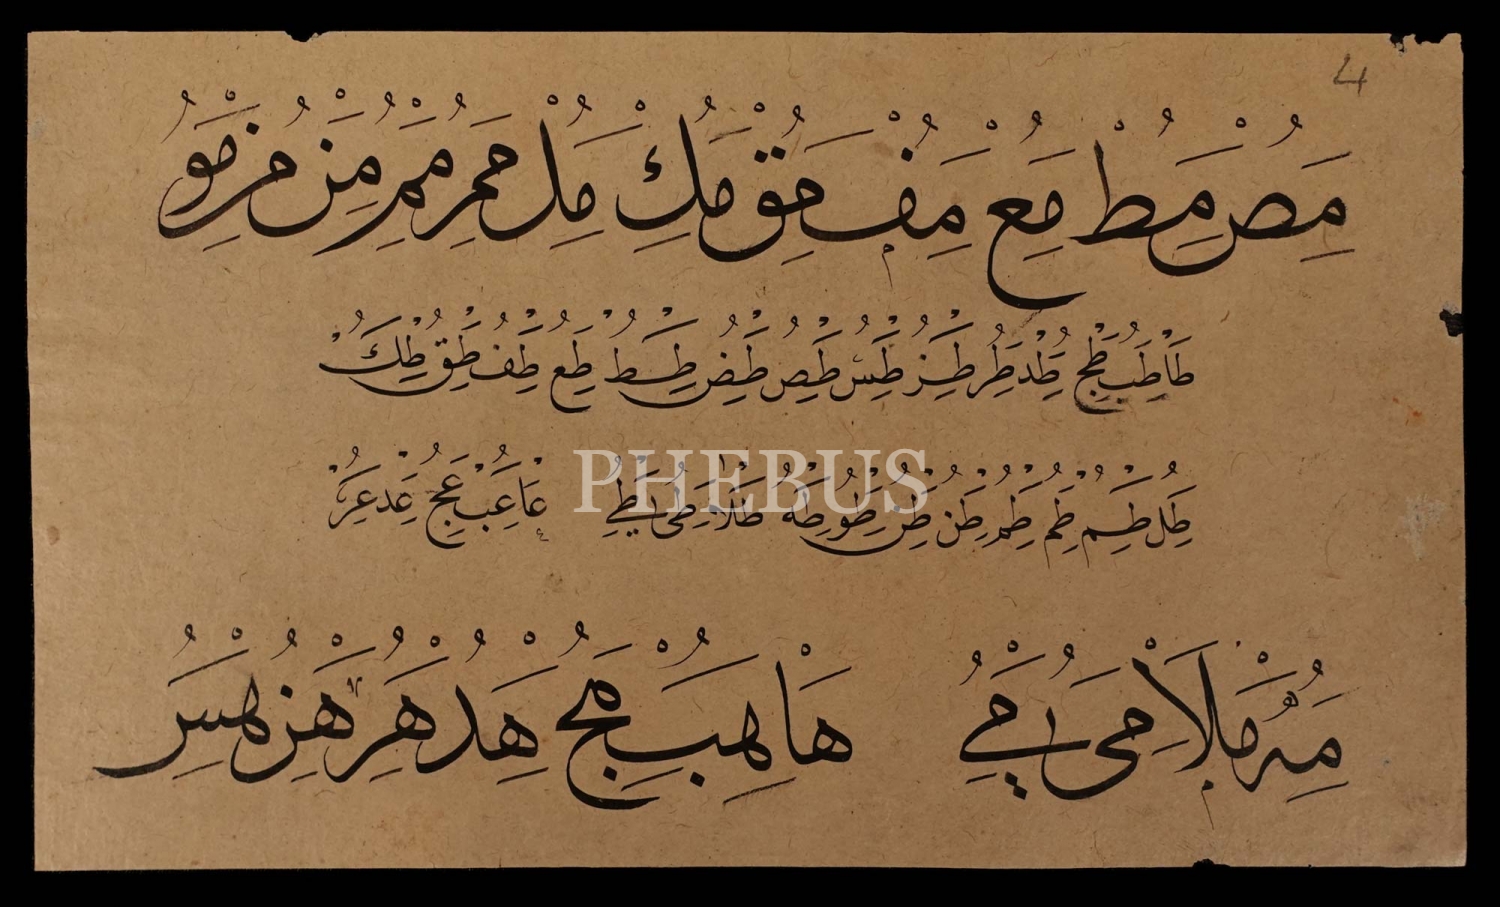 4
مص مط مع مف مق مك مل محمر ممر من مز مو
طا طب طج طد طر طز طس طص طض طط طع طف طق طك
طل طم طم طم طن طن طو طه طلا طى طي عا عب عج عد عر
PHEBUS
مه ملا مى مي ها هب هج هد هر هز هس